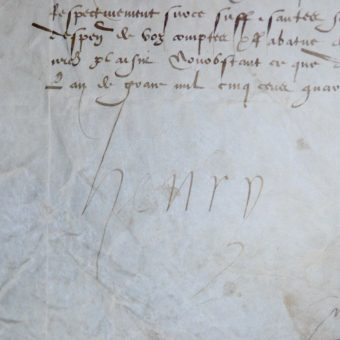 Respectivement suvre suffisantes
despen de voz comptes Et abatue d
plaisir Nonobstant ce que
L an de grace mil cinq cens quar
henry